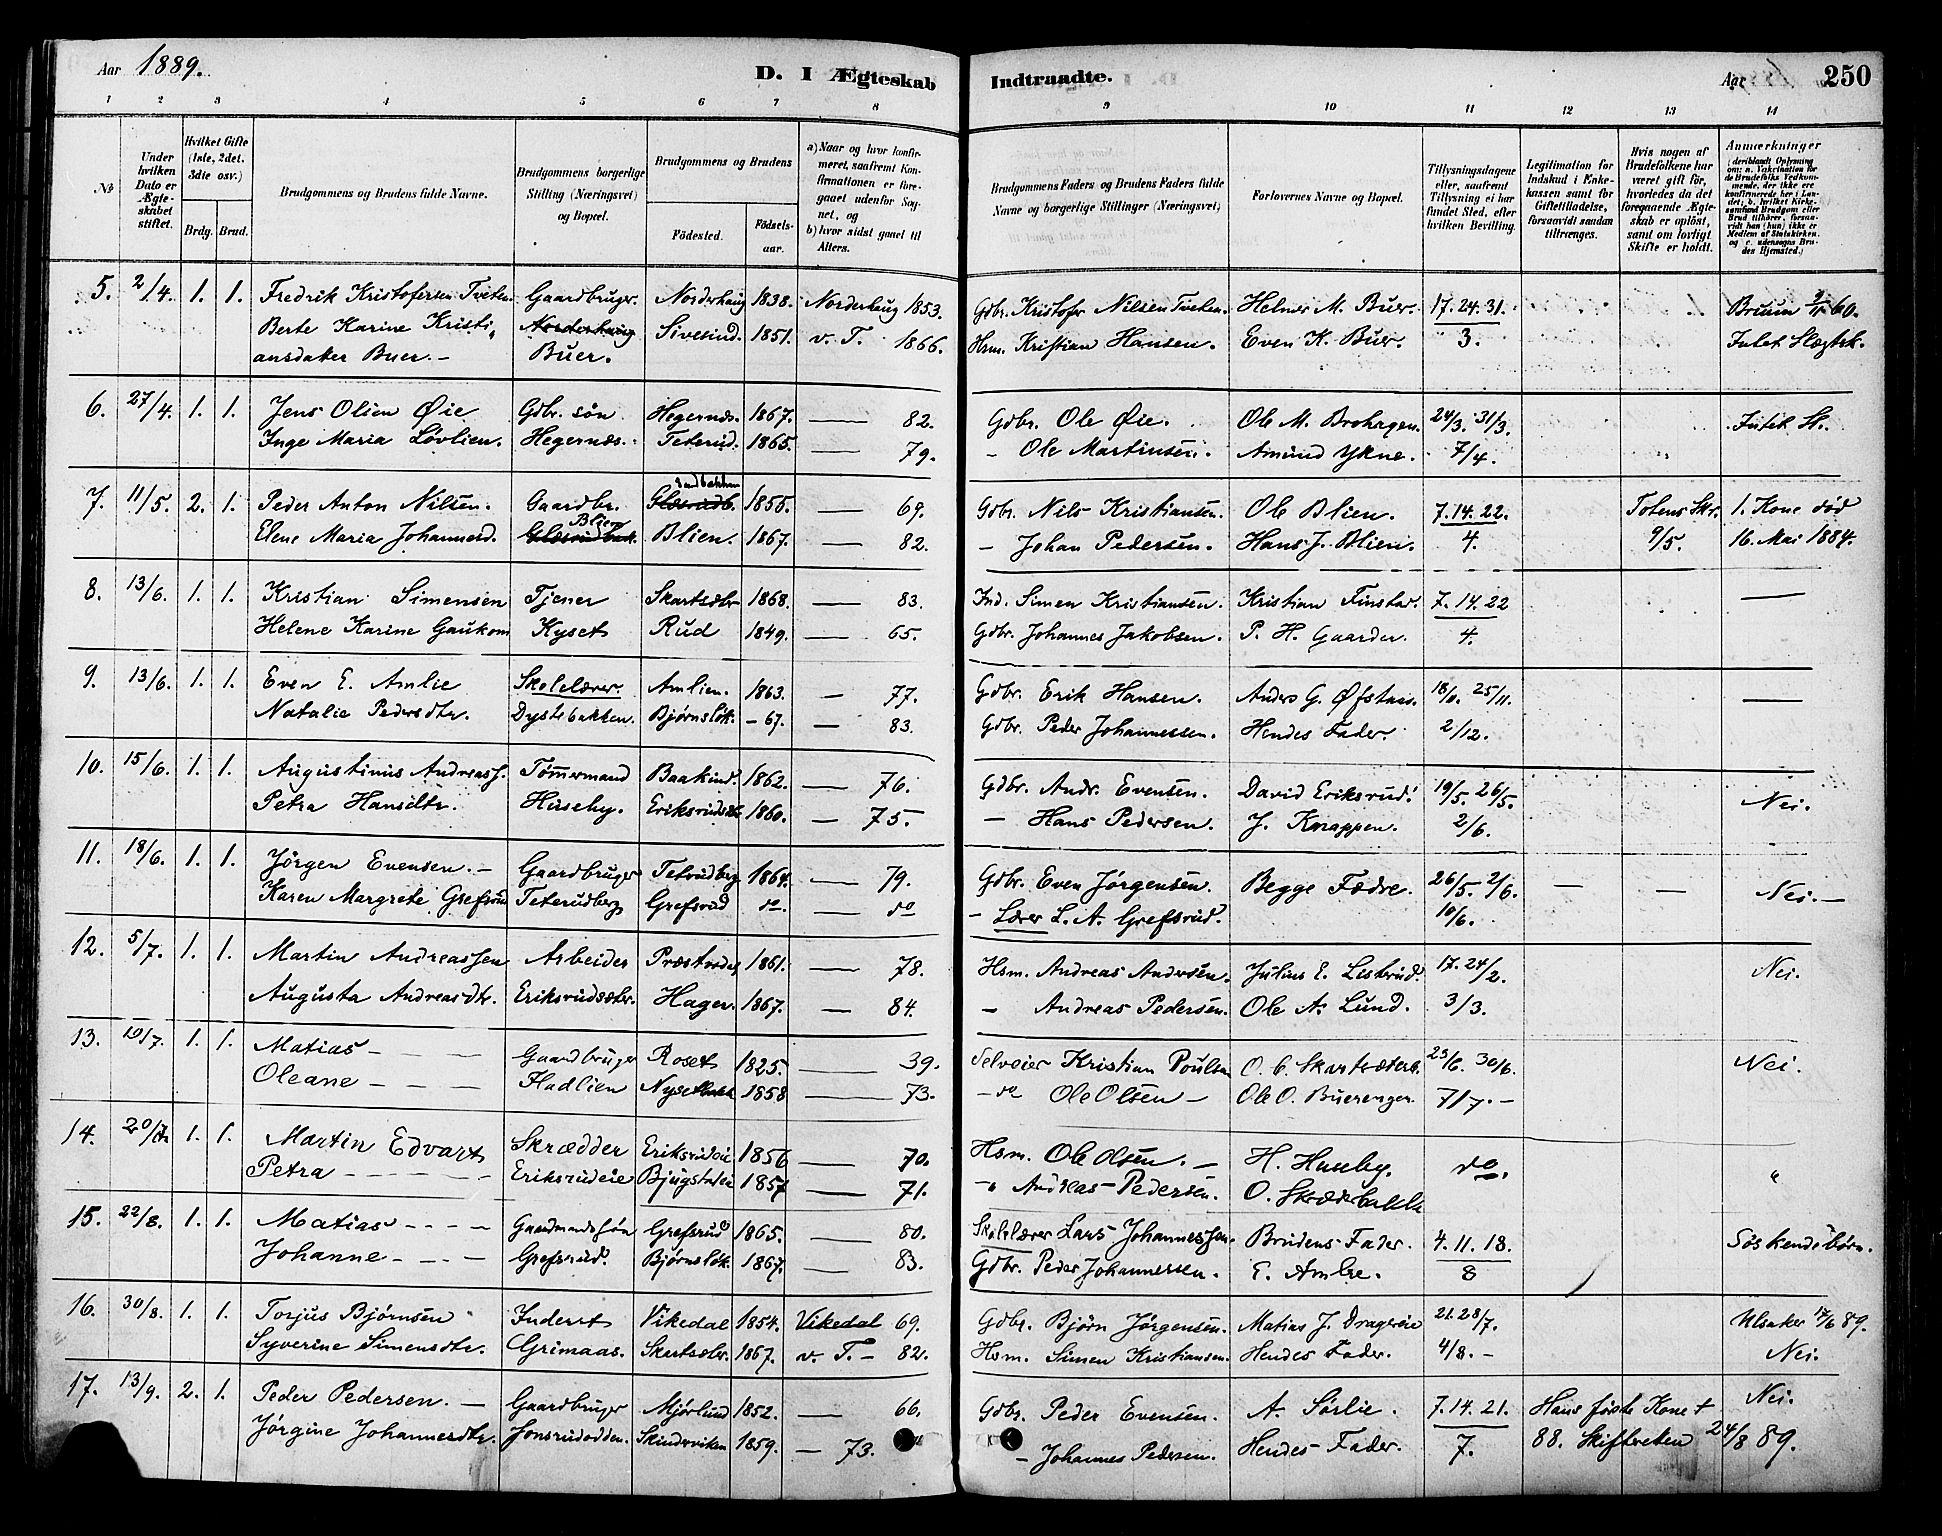 Aar 1889.
D. I Ægteskab Indtraadte.
Aar 250
1 2 3 4 5 6 7 8 9 10 11 12 13 14
No
Under hvilken Dato er Ægteskabet stiftet.
Hvilket Gifte (1ste, 2det, 3die osv.)
Brdg. Brud.
Brudgommens og Brudens fulde Navne.
Brudgommens borgerlige Stilling (Næringsvei) og Bopæl.
Brudgommens og Brudens
Fødested. Fødselsaar.
a) Naar og hvor konfirmeret, saafremt Konfirmationen er foregaaet udenfor Sognet, og
b) hvor sidst gaaet til Alters.
Brudgommens Faders og Brudens Faders fulde Navne og borgerlige Stillinger (Næringsvei)
Forlovernes Navne og Bopæl.
Tillysningsdagene eller, saafremt Tillysning ei har fundet Sted, efter hvilken Bevilling.
Legitimation for Indskud i Enkekassen samt for Giftetilladelse, forsaavidt saadan tiltrænges.
Hvis nogen af Brudefolkene har været gift før, hvorledes da det foregaaende Ægteskab er opløst, samt om lovligt Skifte er holdt.
Anmærkninger
5. 2/4. 1. 1. Fredrik Kristofersen Tveten Gaardbruger. Norderhaug 1838. Norderhaug 1853. Gdbr. Kristofer Nilsen Tveten. Helmer M. Buer. 17. 24. 31. Bruum 60.
Berte Karine Kristi- Norderhaug Sivesind. 1851. v. T. 1866. Hsm. Kristian Hansen. Even K. Buer. 3. Intet Slægtsk.
ansdatter Buer. - Buer.
6. 27/4. 1. 1. Jens Olien Øie Gdbr. søn Hegernæs. 1867. — 82. Gdbr. Ole Øie. Ole M. Brohagen. 24/3. 31/3. Intet Sl.
Inge Maria Løvlien. Hegernæs. Teterud. 1865. — 79. - Ole Martinsen. Amund Ykne. 7/4.
7. 11/5. 2. 1. Peder Anton Nilsen. Gaardbr. Glæsrudb. 1855. — 69. Gdbr. Nils Kristiansen. Ole Blien. 7. 14. 22. Totens Skr. 1. Kone død
Elene Maria Johannesd. Blien Blien. 1867. — 82. - Johan Pedersen. Hans J. Blien. 4. 9/5. 16. Mai 1884.
8. 13/6. 1. 1. Kristian Simensen Tjener Skartsæter 1868. — 83. Ind. Simen Kristiansen. Kristian Finstad. 7. 14. 22 —
Helene Karine Gaukom Kyset Rud 1849. — 65. Gdbr. Johannes Jakobsen. P. H. Gaarder. 4.
9. 13/6. 1. 1. Even E. Amlie Skolelærer. Amlien. 1863. — 77. Gdbr. Erik Hansen. Anders G. Øfstaas. 18/11. 25/11. —
Natalie Pedersdtr. Dystebakken. Bjørnsløk. - 67. — 83. Gdbr. Peder Johannessen. Hendes Fader. 2/12.
10. 15/6. 1. 1. Augustinus Andreass. Tømmermand Baakind. 1862. — 76. Gdbr. Andr. Evensen. David Eriksrud. 19/5. 26/5. Nei.
Petra Hansdtr. Huseby. 1860. — 75. - Hans Pedersen. J. Knappen. 2/6.
11. 18/6. 1. 1. Jørgen Evensen. - Gaardbruger Teterudberg 1864. — 79. Gdbr. Even Jørgensen. Begge Fædre. 26/5. 2/6. — — Nei. -
Karen Margrete Grefsrud Teterudberg Grefsrud do. — do - Lærer L. A. Grefsrud. 10/6.
12. 5/7. 1. 1. Martin Andreassen Arbeider 1861. — 78. Hsm. Andreas Andersen. Julius E. Lesterud. 17. 24/2. Nei.
Augusta Andreasdtr. Eriksrudsætr. Hager. 1867. — 84. - Andreas Pedersen. Ole A. Lund. 3/3.
13. 10/7. 1. 1. Matias - — — Gaardbruger Roset 1825. — 39. Selveier Kristian Poulsen O. C. Skartsæter. 23/6. 30/6. Nei.
Oleane - — — Hadlien Nysetbakk 1858 — 73. - do Ole Olsen - Ole O. Buerenger. 7/7. -
14. 20/7. 1. 1. Martin Edvart Skrædder Eriksrudeie 1856 — 70. Hsm. Ole Olsen. - H. Huseby. do.
Petra - — — Eriksrudeie 1857 — 71. - " Andreas Pedersen. "
15. 22/8. 1. 1. Matias - - - - Gaardmandssøn Grefsrud 1865. — 80. Skolelærer Lars Johannessen. Brudens Fader. 4. 11. 18. Søskendebørn.
Johanne - - - - Grefsrud. Bjørnsløk. 1867. — 83. Gdbr. Peder Johannessen. E. Amlie. 8
16. 30/8. 1. 1. Torjus Bjørnsen Inderst Vikedal 1854. Vikedal 69. Gdbr. Bjørn Jørgensen. Matias J. Drageeie 21. 28/7. Ulsaker 17/6 89.
Syverine Simensdtr. Grimaas. Skartsæter. 1867. v. T. - 82. Hsm. Simen Kristiansen. Hendes Fader. 4/8. - Nei.
17. 13/9. 2. 1. Peder Pedersen. - Gaardbruger Mjørlund 1852. — 66. Gdbr. Peder Evensen. A. Sørlie. 7. 14. 21. Hans første Kone + Nei.
Jørgine Johannesdtr. Jonsrudodden. Skindsviken 1859. — 73. - Johannes Pedersen. Hendes Fader. 7. 88. Skifteretten 24/8 89.